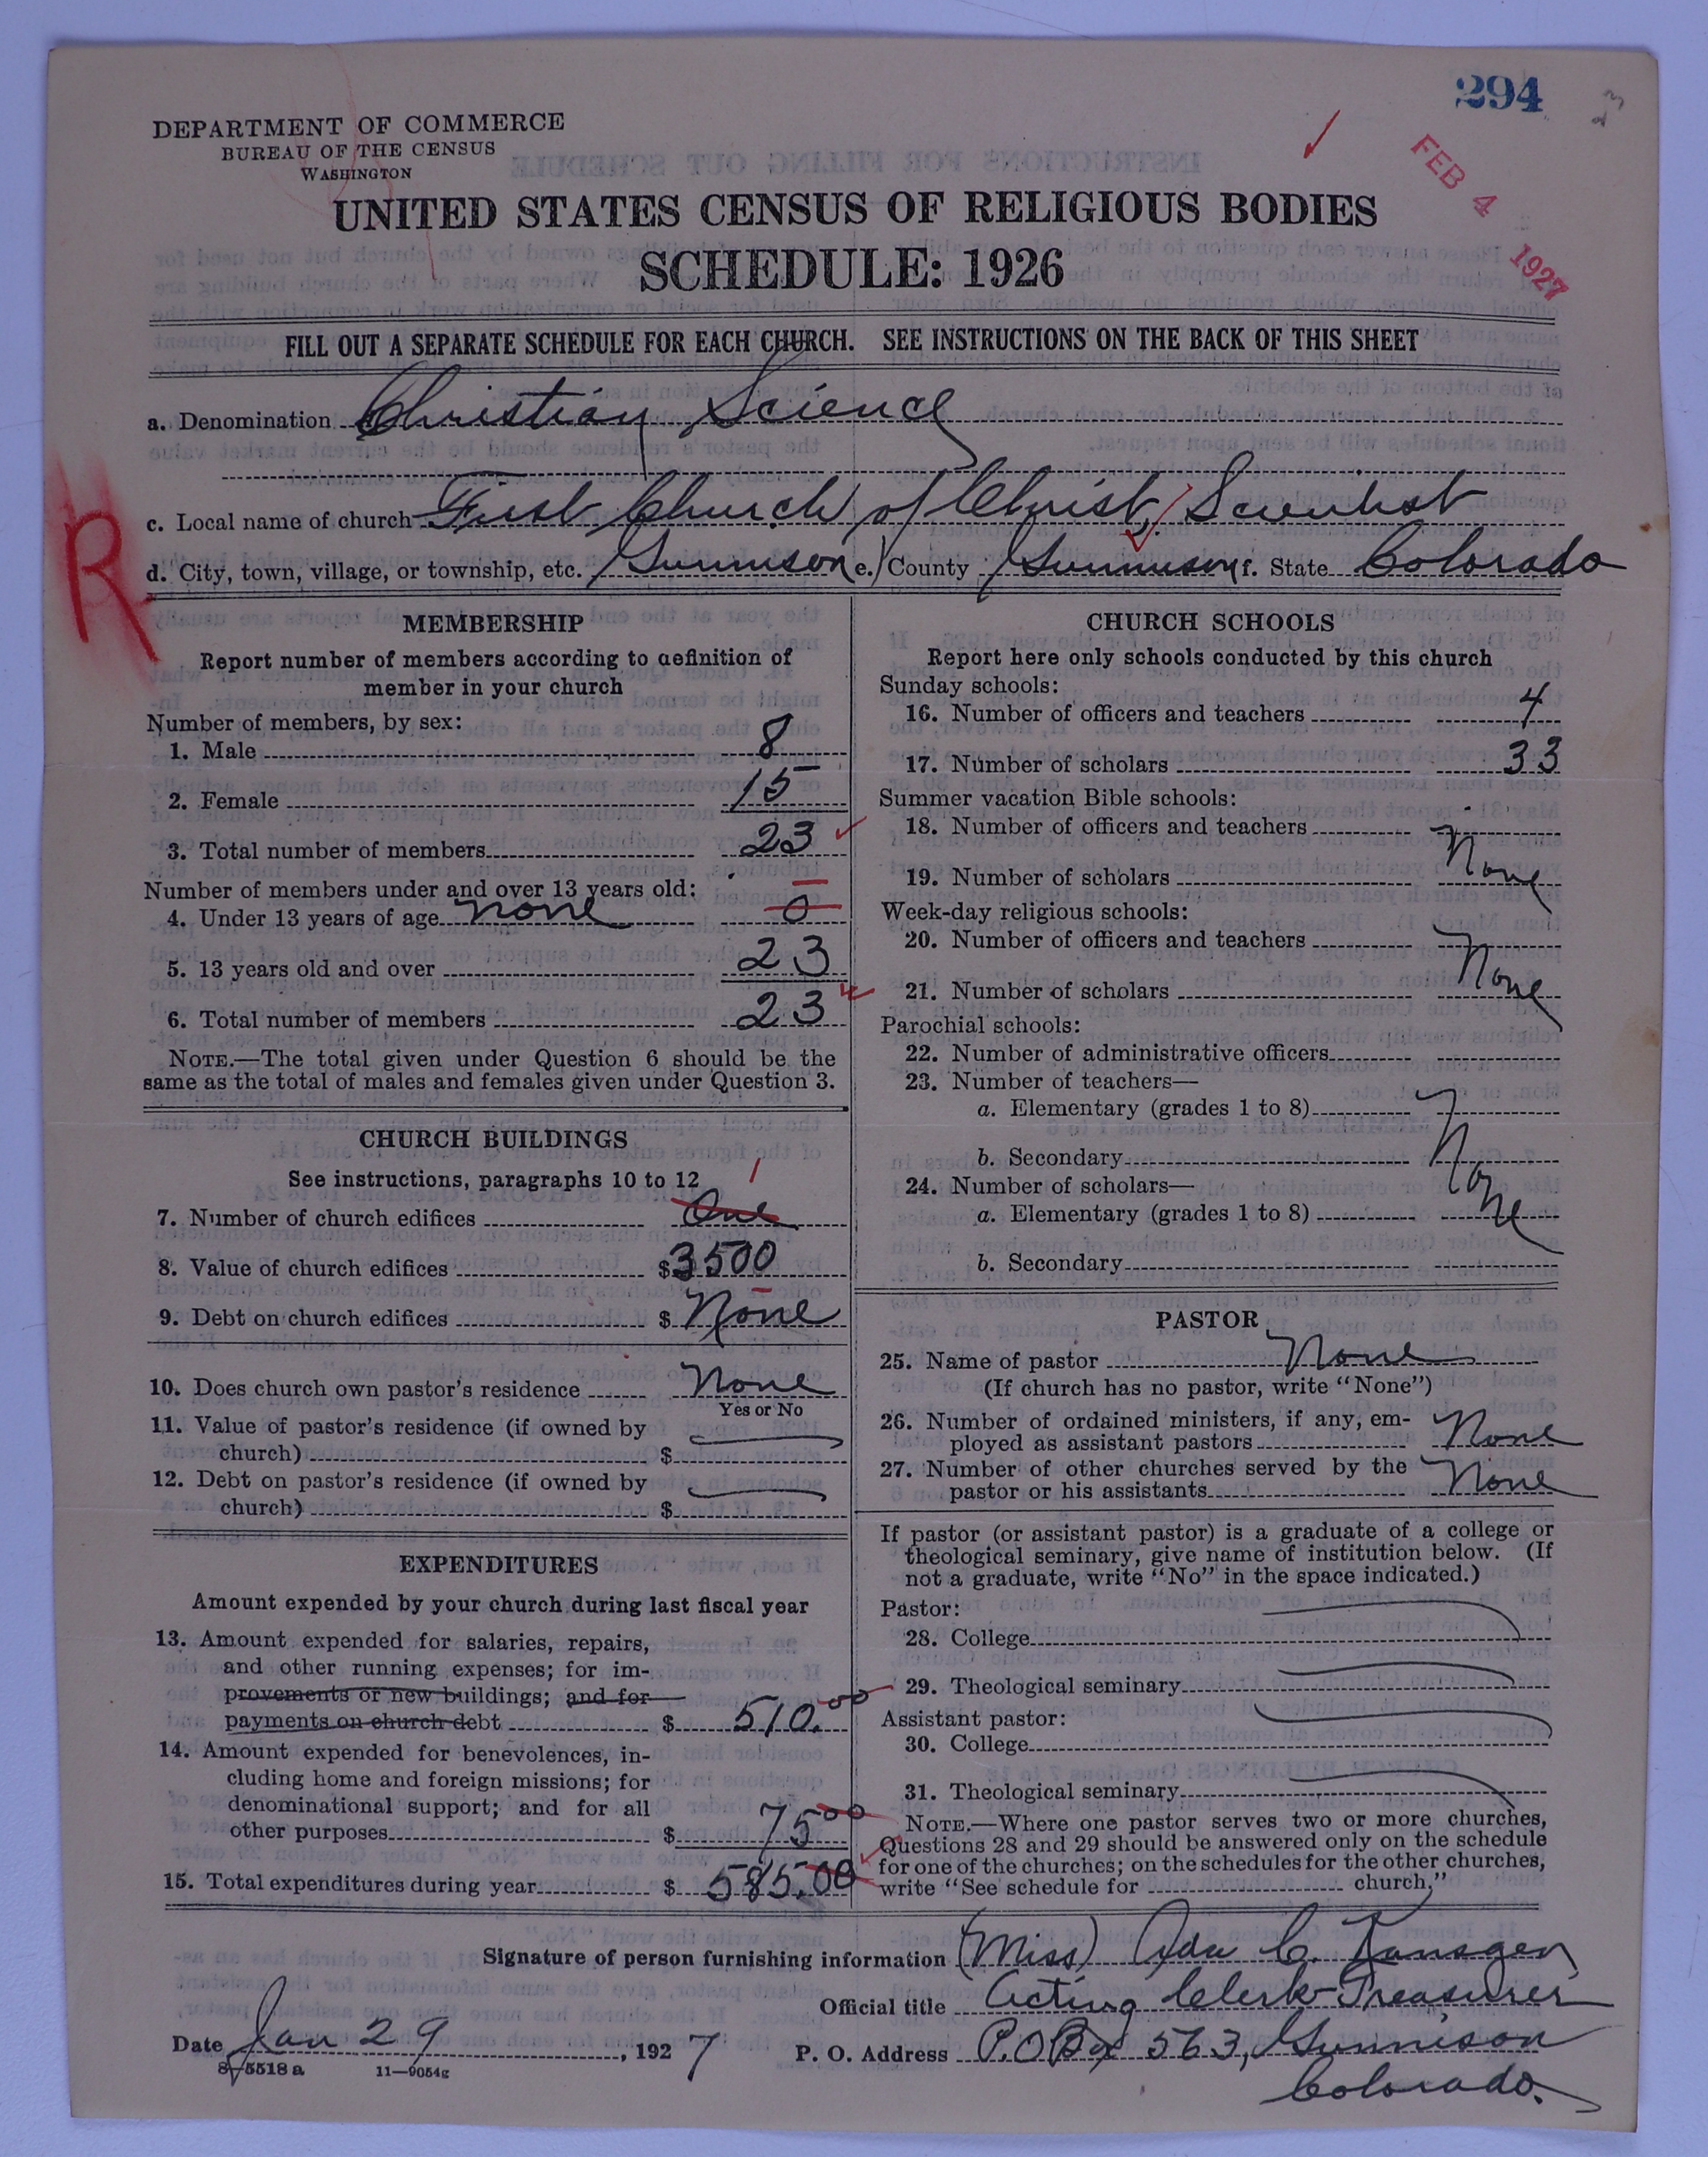 294
23
DEPARTMENT OF COMMERCE
BUREAU OF THE CENSUS
WASHINGTON
FEB 4 1927
UNITED STATES CENSUS OF RELIGIOUS BODIES
SCHEDULE: 1926
FILL OUT A SEPARATE SCHEDULE FOR EACH CHURCH. SEE INSTRUCTIONS ON THE BACK OF THIS SHEET
a. Denomination Christian Science
c. Local name of church First Church of Christ, Scientist
R
d. City, town, village, or township, etc. Gunnison e. County Gunnison f. State Colorado
MEMBERSHIP
Report number of members according to definition of
member in your church
Number of members, by sex:
1. Male 8
2. Female 15
3. Total number of members 23
Number of members under and over 13 years old:
4. Under 13 years of age none 0
5. 13 years old and over 23
6. Total number of members 23
NOTE.—The total given under Question 6 should be the
same as the total of males and females given under Question 3.
CHURCH BUILDINGS
See instructions, paragraphs 10 to 12
1
7. Number of church edifices One
8. Value of church edifices $3500
9. Debt on church edifices $ None
10. Does church own pastor's residence None
Yes or No
11. Value of pastor's residence (if owned by
church) $
12. Debt on pastor's residence (if owned by
church) $
EXPENDITURES
Amount expended by your church during last fiscal year
13. Amount expended for salaries, repairs,
and other running expenses; for im-
provements or new buildings; and for
payments on church debt $ 510.00
14. Amount expended for benevolences, in-
cluding home and foreign missions; for
denominational support; and for all
other purposes $ 75 00
15. Total expenditures during year $ 585.00
CHURCH SCHOOLS
Report here only schools conducted by this church
Sunday schools:
16. Number of officers and teachers 4
17. Number of scholars 33
Summer vacation Bible schools:
18. Number of officers and teachers
None
19. Number of scholars
Week-day religious schools:
20. Number of officers and teachers
None
21. Number of scholars
Parochial schools:
22. Number of administrative officers
23. Number of teachers—
a. Elementary (grades 1 to 8)
None
b. Secondary
24. Number of scholars—
a. Elementary (grades 1 to 8)
b. Secondary
PASTOR
25. Name of pastor None
(If church has no pastor, write "None")
26. Number of ordained ministers, if any, em-
ployed as assistant pastors None
27. Number of other churches served by the
pastor or his assistants None
If pastor (or assistant pastor) is a graduate of a college or
theological seminary, give name of institution below. (If
not a graduate, write "No" in the space indicated.)
Pastor:
28. College
29. Theological seminary
Assistant pastor:
30. College
31. Theological seminary
NOTE.—Where one pastor serves two or more churches,
Questions 28 and 29 should be answered only on the schedule
for one of the churches; on the schedules for the other churches,
write "See schedule for church."
Signature of person furnishing information (Miss) Ada C. Kansgen
Official title Acting Clerk-Treasurer
Date Jan 29, 1927 P. O. Address P.O Box 563, Gunnison
Colorado.
8—5518 a 11—9054g